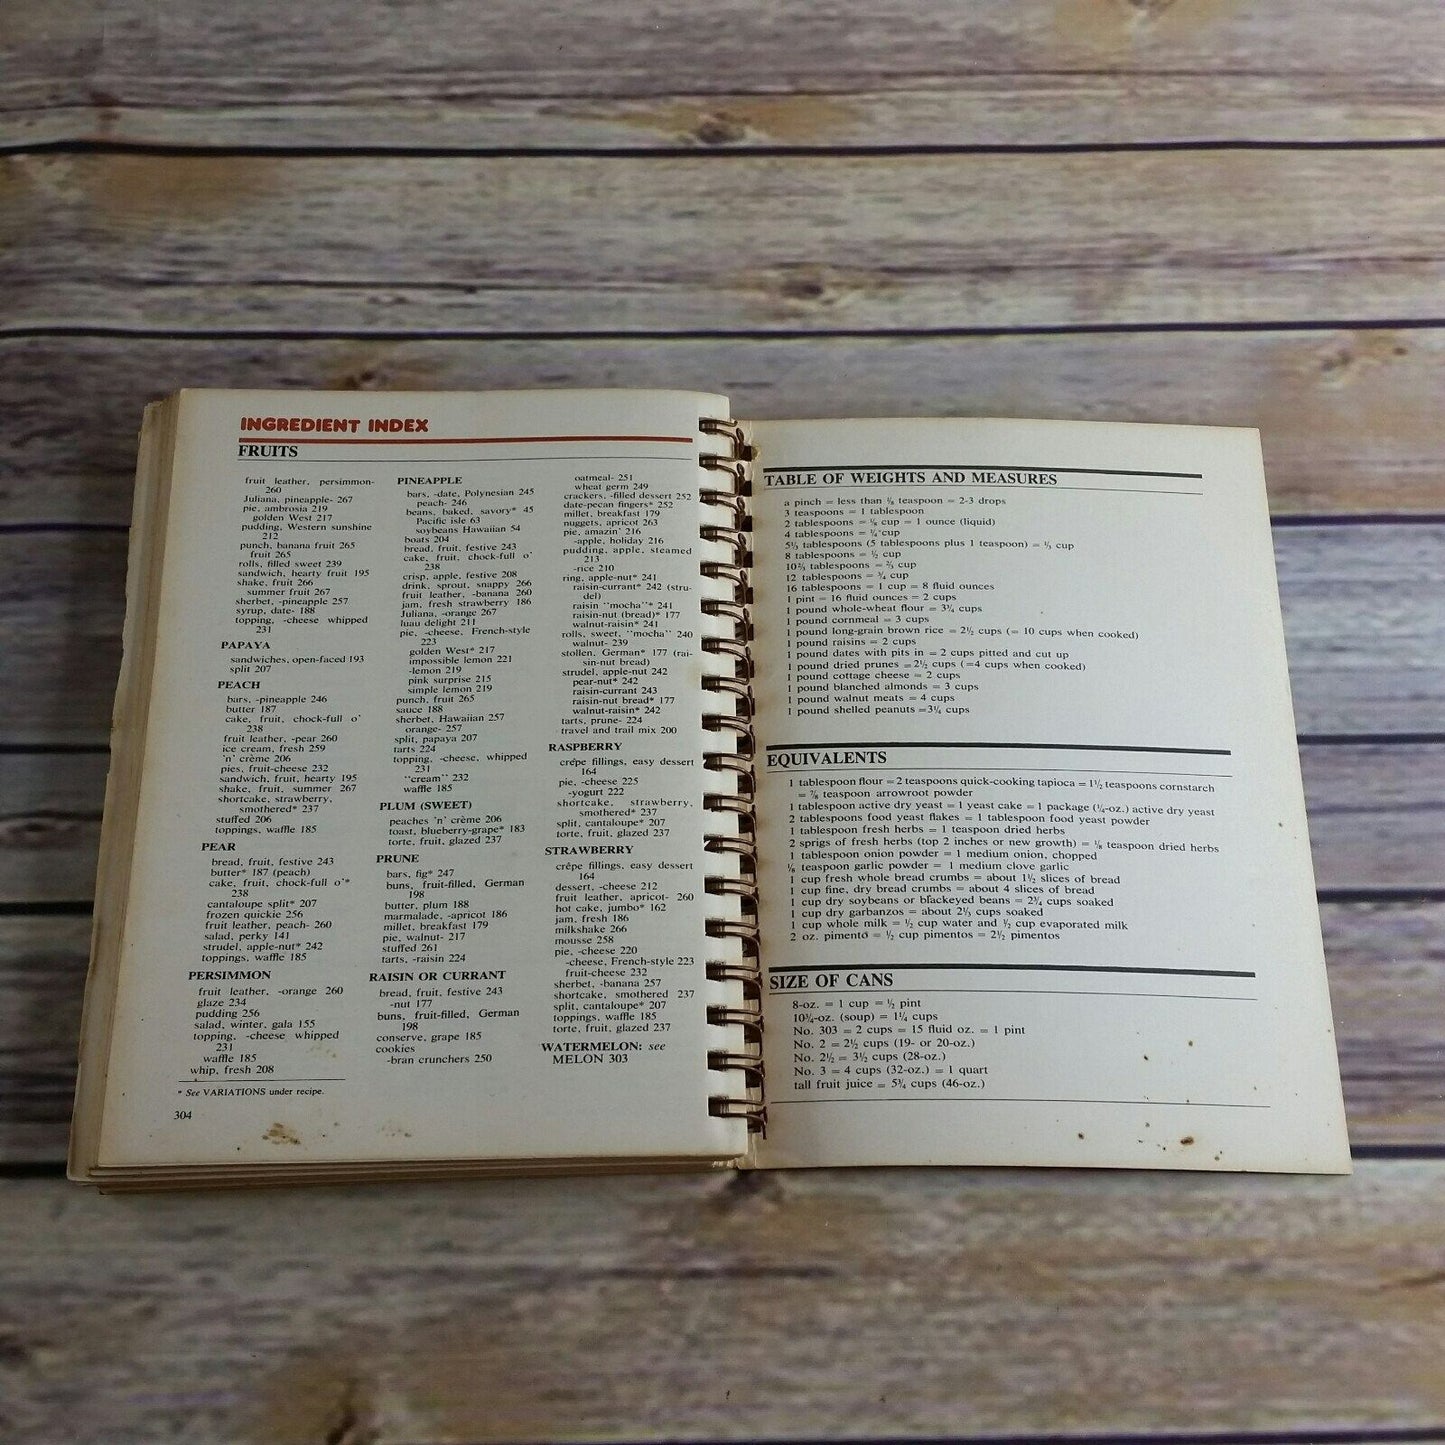 INGREDIENT INDEX
FRUITS
fruit leather, persimmon-
260
Juliana, pineapple- 267
pie, ambrosia 219
golden West 217
pudding, Western sunshine
212
punch, banana fruit 265
fruit 265
rolls, filled sweet 239
sandwich, hearty fruit 195
shake, fruit 266
summer fruit 267
sherbet, -pineapple 257
syrup, date- 188
topping, -cheese whipped
231
PAPAYA
sandwiches, open-faced 193
split 207
PEACH
bars, -pineapple 246
butter 187
cake, fruit, chock-full o'
238
fruit leather, -pear 260
ice cream, fresh 259
'n' crème 206
pies, fruit-cheese 232
sandwich, fruit, hearty 195
shake, fruit, summer 267
shortcake, strawberry,
smothered* 237
stuffed 206
toppings, waffle 185
PEAR
bread, fruit, festive 243
butter* 187 (peach)
cake, fruit, chock-full o'*
238
cantaloupe split* 207
frozen quickie 256
fruit leather, peach- 260
salad, perky 141
strudel, apple-nut* 242
toppings, waffle 185
PERSIMMON
fruit leather, -orange 260
glaze 234
pudding 256
salad, winter, gala 155
topping, -cheese whipped
231
waffle 185
whip, fresh 208
* See VARIATIONS under recipe.
304
PINEAPPLE
bars, -date, Polynesian 245
peach- 246
beans, baked, savory* 45
Pacific isle 63
soybeans Hawaiian 54
boats 204
bread, fruit, festive 243
cake, fruit, chock-full o'
238
crisp, apple, festive 208
drink, sprout, snappy 266
fruit leather, -banana 260
jam, fresh strawberry 186
Juliana, -orange 267
luau delight 211
pie, -cheese, French-style
223
golden West* 217
impossible lemon 221
-lemon 219
pink surprise 215
simple lemon 219
punch, fruit 265
sauce 188
sherbet, Hawaiian 257
orange- 257
split, papaya 207
tarts 224
topping, -cheese, whipped
231
"cream" 232
waffle 185
PLUM (SWEET)
peaches 'n' crème 206
toast, blueberry-grape* 183
torte, fruit, glazed 237
PRUNE
bars, fig* 247
buns, fruit-filled, German
198
butter, plum 188
marmalade, -apricot 186
millet, breakfast 179
pie, walnut- 217
stuffed 261
tarts, -raisin 224
RAISIN OR CURRANT
bread, fruit, festive 243
-nut 177
buns, fruit-filled, German
198
conserve, grape 185
cookies
-bran crunchers 250
oatmeal- 251
wheat germ 249
crackers, -filled dessert 252
date-pecan fingers* 252
millet, breakfast 179
nuggets, apricot 263
pie, amazin' 216
-apple, holiday 216
pudding, apple, steamed
213
-rice 210
ring, apple-nut* 241
raisin-currant* 242 (stru-
del)
raisin "mocha"* 241
raisin-nut (bread)* 177
walnut-raisin* 241
rolls, sweet, "mocha" 240
walnut- 239
stollen, German* 177 (rai-
sin-nut bread)
strudel, apple-nut 242
pear-nut* 242
raisin-currant 243
raisin-nut bread* 177
walnut-raisin* 242
tarts, prune- 224
travel and trail mix 200
RASPBERRY
crêpe fillings, easy dessert
164
pie, -cheese 225
-yogurt 222
shortcake, strawberry,
smothered* 237
split, cantaloupe* 207
torte, fruit, glazed 237
STRAWBERRY
crêpe fillings, easy dessert
164
dessert, -cheese 212
fruit leather, apricot- 260
hot cake, jumbo* 162
jam, fresh 186
milkshake 266
mousse 258
pie, -cheese 220
-cheese, French-style 223
fruit-cheese 232
sherbet, -banana 257
shortcake, smothered 237
split, cantaloupe* 207
toppings, waffle 185
torte, fruit, glazed 237
WATERMELON: see
MELON 303
TABLE OF WEIGHTS AND MEASURES
a pinch = less than ⅛ teaspoon = 2-3 drops
3 teaspoons = 1 tablespoon
2 tablespoons = ⅛ cup = 1 ounce (liquid)
4 tablespoons = ¼ cup
5⅓ tablespoons (5 tablespoons plus 1 teaspoon) = ⅓ cup
8 tablespoons = ½ cup
10⅔ tablespoons = ⅔ cup
12 tablespoons = ¾ cup
16 tablespoons = 1 cup = 8 fluid ounces
1 pint = 16 fluid ounces = 2 cups
1 pound whole-wheat flour = 3¾ cups
1 pound cornmeal = 3 cups
1 pound long-grain brown rice = 2½ cups (= 10 cups when cooked)
1 pound raisins = 2 cups
1 pound dates with pits in = 2 cups pitted and cut up
1 pound dried prunes = 2½ cups (=4 cups when cooked)
1 pound cottage cheese = 2 cups
1 pound blanched almonds = 3 cups
1 pound walnut meats = 4 cups
1 pound shelled peanuts =3¼ cups
EQUIVALENTS
1 tablespoon flour = 2 teaspoons quick-cooking tapioca = 1½ teaspoons cornstarch
= ⅞ teaspoon arrowroot powder
1 tablespoon active dry yeast = 1 yeast cake = 1 package (¼-oz.) active dry yeast
2 tablespoons food yeast flakes = 1 tablespoon food yeast powder
1 tablespoon fresh herbs = 1 teaspoon dried herbs
2 sprigs of fresh herbs (top 2 inches or new growth) = ⅛ teaspoon dried herbs
1 tablespoon onion powder = 1 medium onion, chopped
⅛ teaspoon garlic powder = 1 medium clove garlic
1 cup fresh whole bread crumbs = about 1½ slices of bread
1 cup fine, dry bread crumbs = about 4 slices of bread
1 cup dry soybeans or blackeyed beans = 2¾ cups soaked
1 cup dry garbanzos = about 2⅓ cups soaked
1 cup whole milk = ½ cup water and ½ cup evaporated milk
2 oz. pimento = ½ cup pimentos = 2½ pimentos
SIZE OF CANS
8-oz. = 1 cup = ½ pint
10¾-oz. (soup) = 1¼ cups
No. 303 = 2 cups = 15 fluid oz. = 1 pint
No. 2 = 2½ cups (19- or 20-oz.)
No. 2½ = 3½ cups (28-oz.)
No. 3 = 4 cups (32-oz.) = 1 quart
tall fruit juice = 5¾ cups (46-oz.)